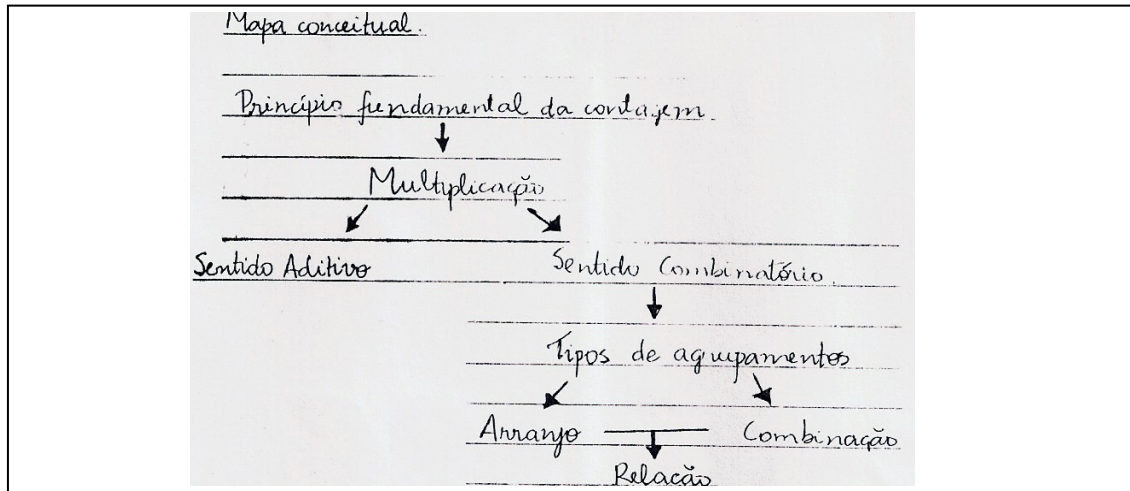 Mapa conceitual.
Princípio fundamental da contagem
Multiplicação
Sentido Aditivo Sentido Combinatório.
Tipos de agrupamentos
Arranjo Combinação
Relação